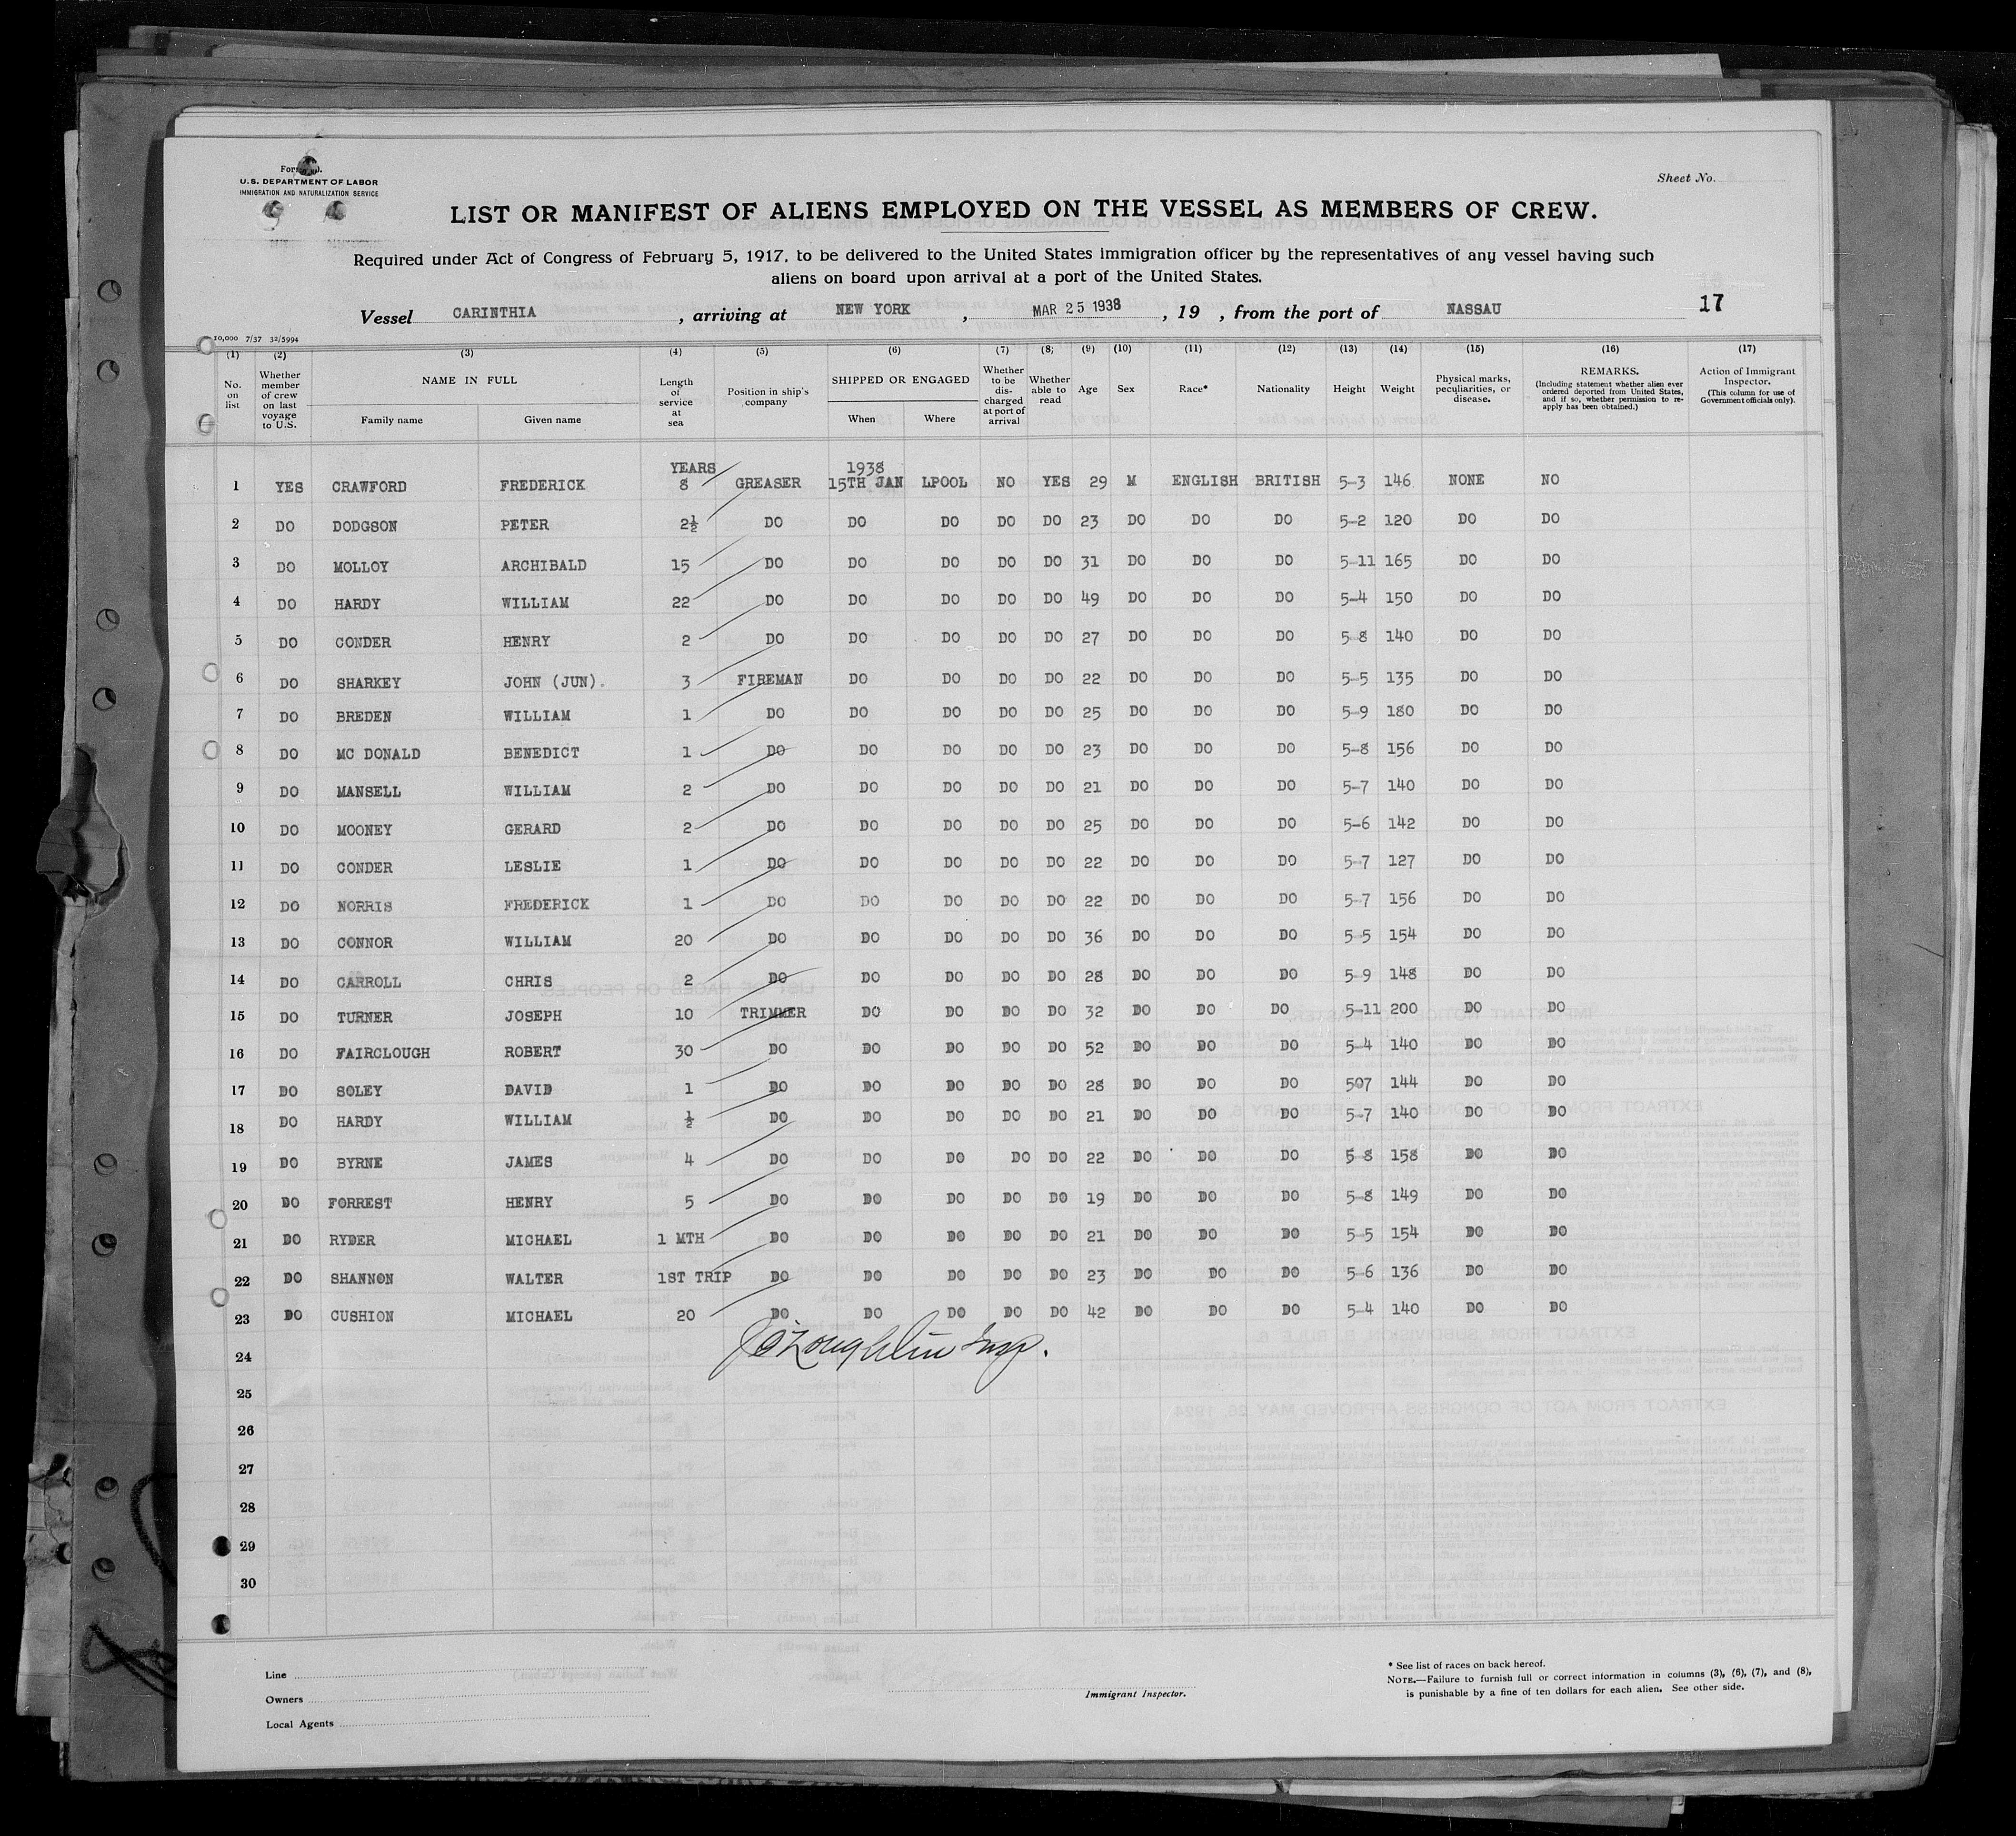 U.S. DEPARTMENT OF LABOR
IMMIGRATION AND NATURALIZATION SERVICE
Sheet No.
LIST OR MANIFEST OF ALIENS EMPLOYED ON THE VESSEL AS MEMBERS OF CREW.
Required under Act of Congress of February 5, 1917, to be delivered to the United States immigration officer by the representatives of any vessel having such
aliens on board upon arrival at a port of the United States.
Vessel CARINTHIA, arriving at NEW YORK, MAR 25 1938, 19 , from the port of NASSAU 17
10,000 7/37 32/5994
(1) (2) (3) (4) (5) (6) (7) (8) (9) (10) (11) (12) (13) (14) (15) (16) (17)
No. on list
Whether member of crew on last voyage to U.S.
NAME IN FULL
Family name Given name
Length of service at sea
Position in ship's company
SHIPPED OR ENGAGED
When Where
Whether to be discharged at port of arrival
Whether able to read
Age
Sex
Race*
Nationality
Height
Weight
Physical marks, peculiarities, or disease.
REMARKS.
(Including statement whether alien ever ordered deported from United States, and if so, whether permission to reapply has been obtained.)
Action of Immigrant Inspector.
(This column for use of Government officials only).
YEARS 1938
1 YES CRAWFORD FREDERICK 8 GREASER 15TH JAN LPOOL NO YES 29 M ENGLISH BRITISH 5-3 146 NONE NO
2 DO DODGSON PETER 2½ DO DO DO DO DO 23 DO DO DO 5-2 120 DO DO
3 DO MOLLOY ARCHIBALD 15 DO DO DO DO DO 31 DO DO DO 5-11 165 DO DO
4 DO HARDY WILLIAM 22 DO DO DO DO DO 49 DO DO DO 5-4 150 DO DO
5 DO CONDER HENRY 2 DO DO DO DO DO 27 DO DO DO 5 8 140 DO DO
6 DO SHARKEY JOHN (JUN). 3 FIREMAN DO DO DO DO 22 DO DO DO 5-5 135 DO DO
7 DO BREDEN WILLIAM 1 DO DO DO DO DO 25 DO DO DO 5-9 180 DO DO
8 DO MC DONALD BENEDICT 1 DO DO DO DO DO 23 DO DO DO 5-8 156 DO DO
9 DO MANSELL WILLIAM 2 DO DO DO DO DO 21 DO DO DO 5-7 140 DO DO
10 DO MOONEY GERARD 2 DO DO DO DO DO 25 DO DO DO 5-6 142 DO DO
11 DO CONDER LESLIE 1 DO DO DO DO DO 22 DO DO DO 5-7 127 DO DO
12 DO NORRIS FREDERICK 1 DO DO DO DO DO 22 DO DO DO 5-7 156 DO DO
13 DO CONNOR WILLIAM 20 DO DO DO DO DO 36 DO DO DO 5-5 154 DO DO
14 DO CARROLL CHRIS 2 DO DO DO DO DO 28 DO DO DO 5-9 148 DO DO
15 DO TURNER JOSEPH 10 TRIMMER DO DO DO DO 32 DO DO DO 5-11 200 DO DO
16 DO FAIRCLOUGH ROBERT 30 DO DO DO DO DO 52 DO DO DO 5-4 140 DO DO
17 DO SOLEY DAVID 1 DO DO DO DO DO 28 DO DO DO 507 144 DO DO
18 DO HARDY WILLIAM ½ DO DO DO DO DO 21 DO DO DO 5-7 140 DO DO
19 DO BYRNE JAMES 4 DO DO DO DO DO 22 DO DO DO 5 8 158 DO DO
20 DO FORREST HENRY 5 DO DO DO DO DO 19 DO DO DO 5-8 149 DO DO
21 DO RYDER MICHAEL 1 MTH DO DO DO DO DO 21 DO DO DO 5-5 154 DO DO
22 DO SHANNON WALTER 1ST TRIP DO DO DO DO DO 23 DO DO DO 5-6 136 DO DO
23 DO CUSHION MICHAEL 20 DO DO DO DO DO 42 DO DO DO 5-4 140 DO DO
24
25
26
27
28
29
30
Line
Owners
Local Agents
Immigrant Inspector.
* See list of races on back hereof.
NOTE.—Failure to furnish full or correct information in columns (3), (6), (7), and (8),
is punishable by a fine of ten dollars for each alien. See other side.